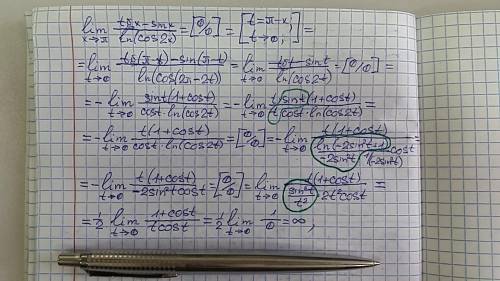 lim x→π (tg x − sin x)/(ln(cos2x)) = [0/0] = [t = π−x, t→0,] =
= lim t→0 (tg(π−t) − sin(π−t))/(ln(cos(2π−2t))) = lim t→0 (−tg t − sin t)/(ln(cos2t)) = [0/0] =
= − lim t→0 (sin t (1+cos t))/(cos t · ln(cos2t)) = − lim t→0 (t sin t (1+cos t))/(t cos t · ln(cos2t)) =
= − lim t→0 (t(1+cos t))/(cos t · ln(cos2t)) = [0/0] = − lim t→0 (t(1+cos t))/((ln(−2sin²t+1))/(−2sin²t) · (−2sin²t) cos t) =
= − lim t→0 (t(1+cos t))/(−2sin²t cos t) = [0/0] = lim t→0 (t(1+cos t))/((sin²t)/(t²) · 2t² cos t) =
= 1/2 lim t→0 (1+cos t)/(t cos t) = 1/2 lim t→0 1/0 = ∞,